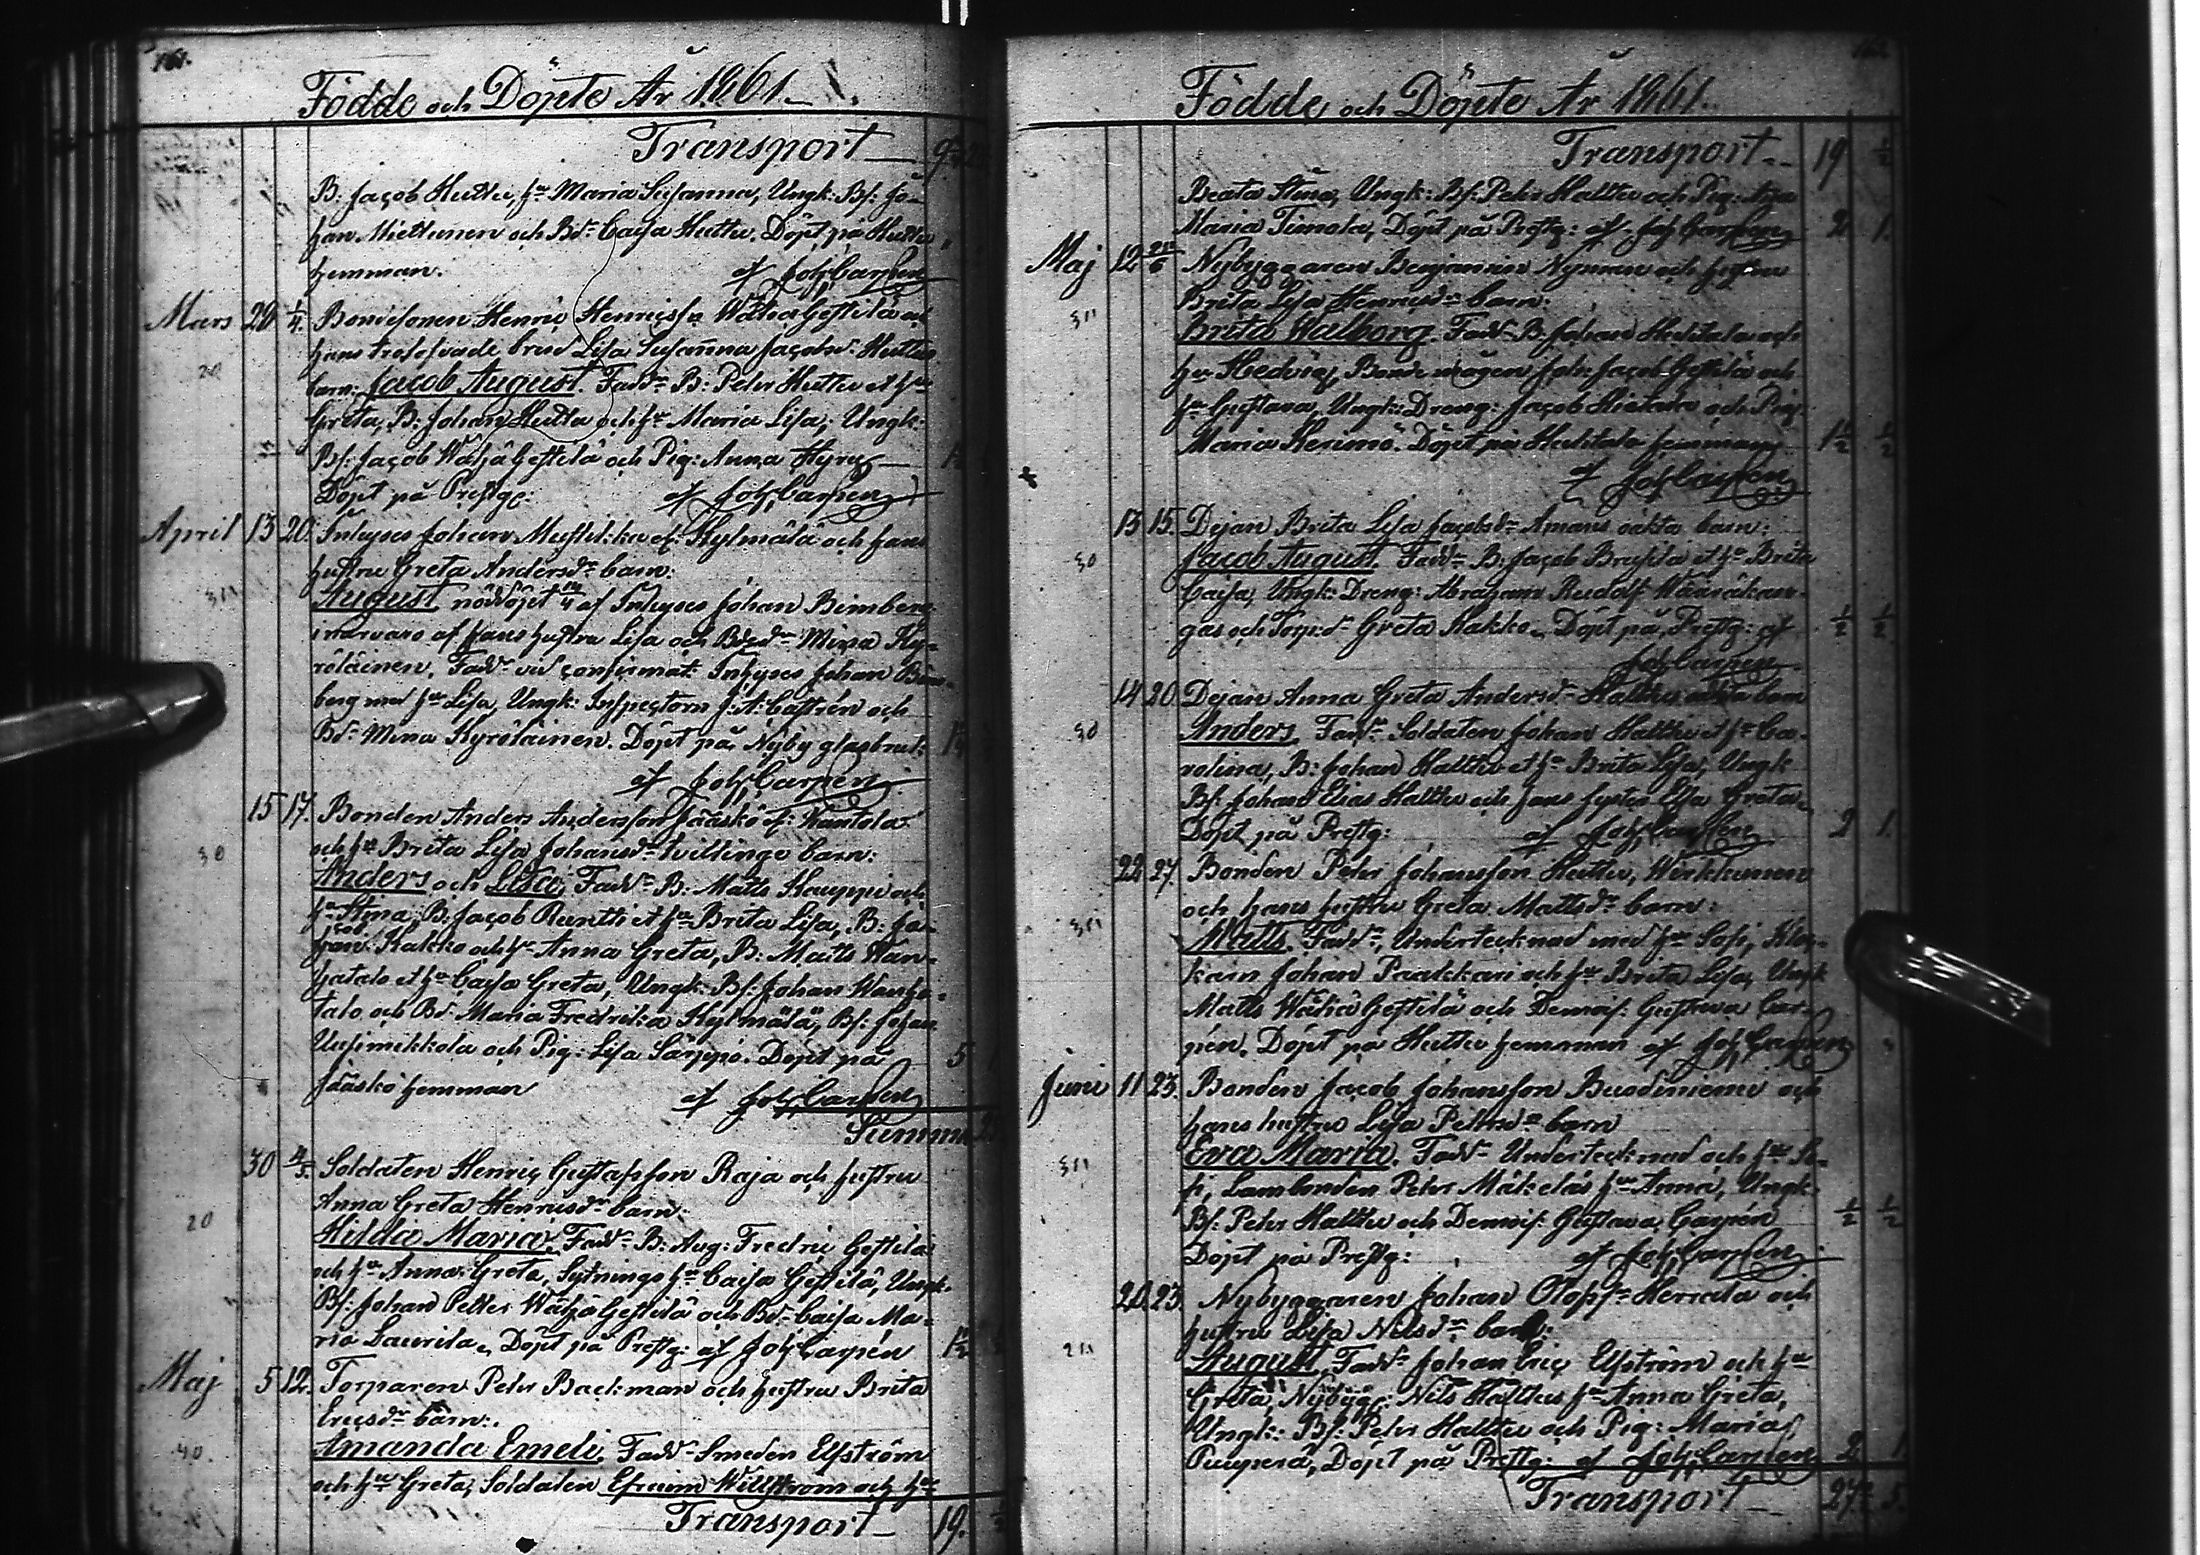 161.
Födde och Döpte År 1861.
Transport
B: Jacob Huttu, hu Maria Susanna, Ungk: Bs: Jo-
han Miettunen och Bd: Caisa Huttu. Döpt på Huttu
hemman. af Joh Carpén
Mars 20 1/4. Bondesonen Henric Henricss. Wähä Gestilä och
hans trolofvade brud Lisa Susanna Jacobsd: Huttus
20
barn: Jacob August. Fadd: B: Pehr Huttu et hu
Greta, B: Johan Huttu och hu Maria Lisa, Ungk:
Bs: Jacob Wähä Gestilä och Pig: Anna Hyry
Döpt på Prestg: af Joh Carpén
April 13 20. Inhyses Johan Mustikka af Kylmälä och hans
hustru Greta Andersd: barn:
August nöddöpt af Inhyses Johan Bimberg
i närvaro af hans hustru Lisa och Bd: Mina Ky-
röläinen. Fadd: vid confirmat: Inhyses Johan Bim-
berg med hu Lisa, Ungk: Inspectorn J. A: Castrén och
Bd: Mina Kyröläinen. Döpt på Nyby glasbruk:
af Joh Carpén
15 17. Bonden Anders Andersson Jääskö af: Wuotola
och hu Brita Lisa Johansd: tvillinge barn:
30
Anders och Lisa, Fadd: B: Matts Kauppi och
hu Stina, B: Jacob Runtti et hu Brita Lisa, B: Ja-
cob Kakko och hu Anna Greta, B: Matts Wan-
hatalo et hu Caisa Greta, Ungk: Bs: Johan Wanha-
talo och Bd: Maria Fredrika Kylmälä, Bs: Johan
Uusimikkola och Pig: Lisa Säppä. Döpt på 5
Jääskö hemman af Joh Carpén
Summa
30 4/5. Soldaten Henric Gustafsson Raja och hustru
Anna Greta Henricsd: barn:
20
Hilda Maria. Fadd: B: Aug: Fredric Gestilä
och hu Anna Greta, Sytnings hu Caisa Gestilä, Ungk:
Bs: Johan Petter Wähä Gestilä och Bd: Caisa Ma-
ria Laurila, Döpt på Prestg: af Joh Carpén 1 1/2
Maj 5 12. Torparen Pehr Backman och hustru Brita
Ericsd: barn:
40.
Amanda Emeli. Fadd: Smeden Elfström
och hu Greta, Soldaten Efraim Willström och hu
Transport 19. 1/2
162.
Födde och Döpte År 1861.
Transport 19 1/2
Beata Stina, Ungk: Bs: Pehr Halttu och Pig:
Maria Timola, Döpt på Prestg: af Joh Carpén 2 1.
Maj 12 Nybyggaren Benjamin Nyman och hustru
Brita Lisa Henricsd: barn:
Brita Walborg. Fadd: B: Johan Huhtala och
hu Hedvig, Bonde mågen Joh: Jacob Gestilä och
hu Gustava, Ungk: Dreng: Jacob och Pig:
Maria Kerimö. Döpt på Huhtala hemman 1 1/2 1/2
af Joh Carpén
13 15. Dejan Brita Lisa Jacobsd: Amans oäkta barn:
30
Jacob August. Fadd: B: Jacob et hu Brita
Caisa, Ungk: Dreng: Abraham Rudolf Määräkan-
gas och Torp:d: Greta Kakko. Döpt på Prestg: af 1/2 1/2
Joh Carpén
14 20. Dejan Anna Greta Andersd: Halttus oäkta barn
30
Anders. Fadd: Soldaten Johan Halttu et hu Ca-
rolina, B: Johan Halttu et hu Brita Lisa, Ungk
Bs: Johan Elias Halttu och hans syster Elsa Greta.
Döpt på Prestg: af Joh Carpén 2 1.
22 27. Bonden Pehr Johansson Huttu, Wirkkunen
och hans hustru Greta Mattsd: barn:
Matts. Fadd: Undertecknad med hu Sofi, Kloc-
karn Johan Paakkari och hu Brita Lisa, Ungk
Matts Wähä Gestilä och Demois: Gustava Car-
pén. Döpt på Huttu hemman af Joh Carpén
Juni 11 23. Bonden Jacob Johansson Buodiniemi och
hans hustru Lisa Pettersd: barn
Eva Maria. Fadd: Undertecknad och hu So-
fi, Lambonden Pehr Mäkeläs hu Anna, Ungk
Bs: Pehr Halttu och Demois: Gustava Carpén 1/2 1/2
Döpt på Prestg: af Joh Carpén
20. 23. Nybyggaren Johan Olofss: Heriala och
hustru Lisa Nilsd: barn:
August. Fadd: Johan Eric Elfström och hu
Greta, Nybygg: Nils Halttus hu Anna Greta,
Ungk: Bs: Pehr Halttu och Pig: Maria
Puuperä, Döpt på Prestg: af Joh Carpén 2 1
Transport 27. 5.